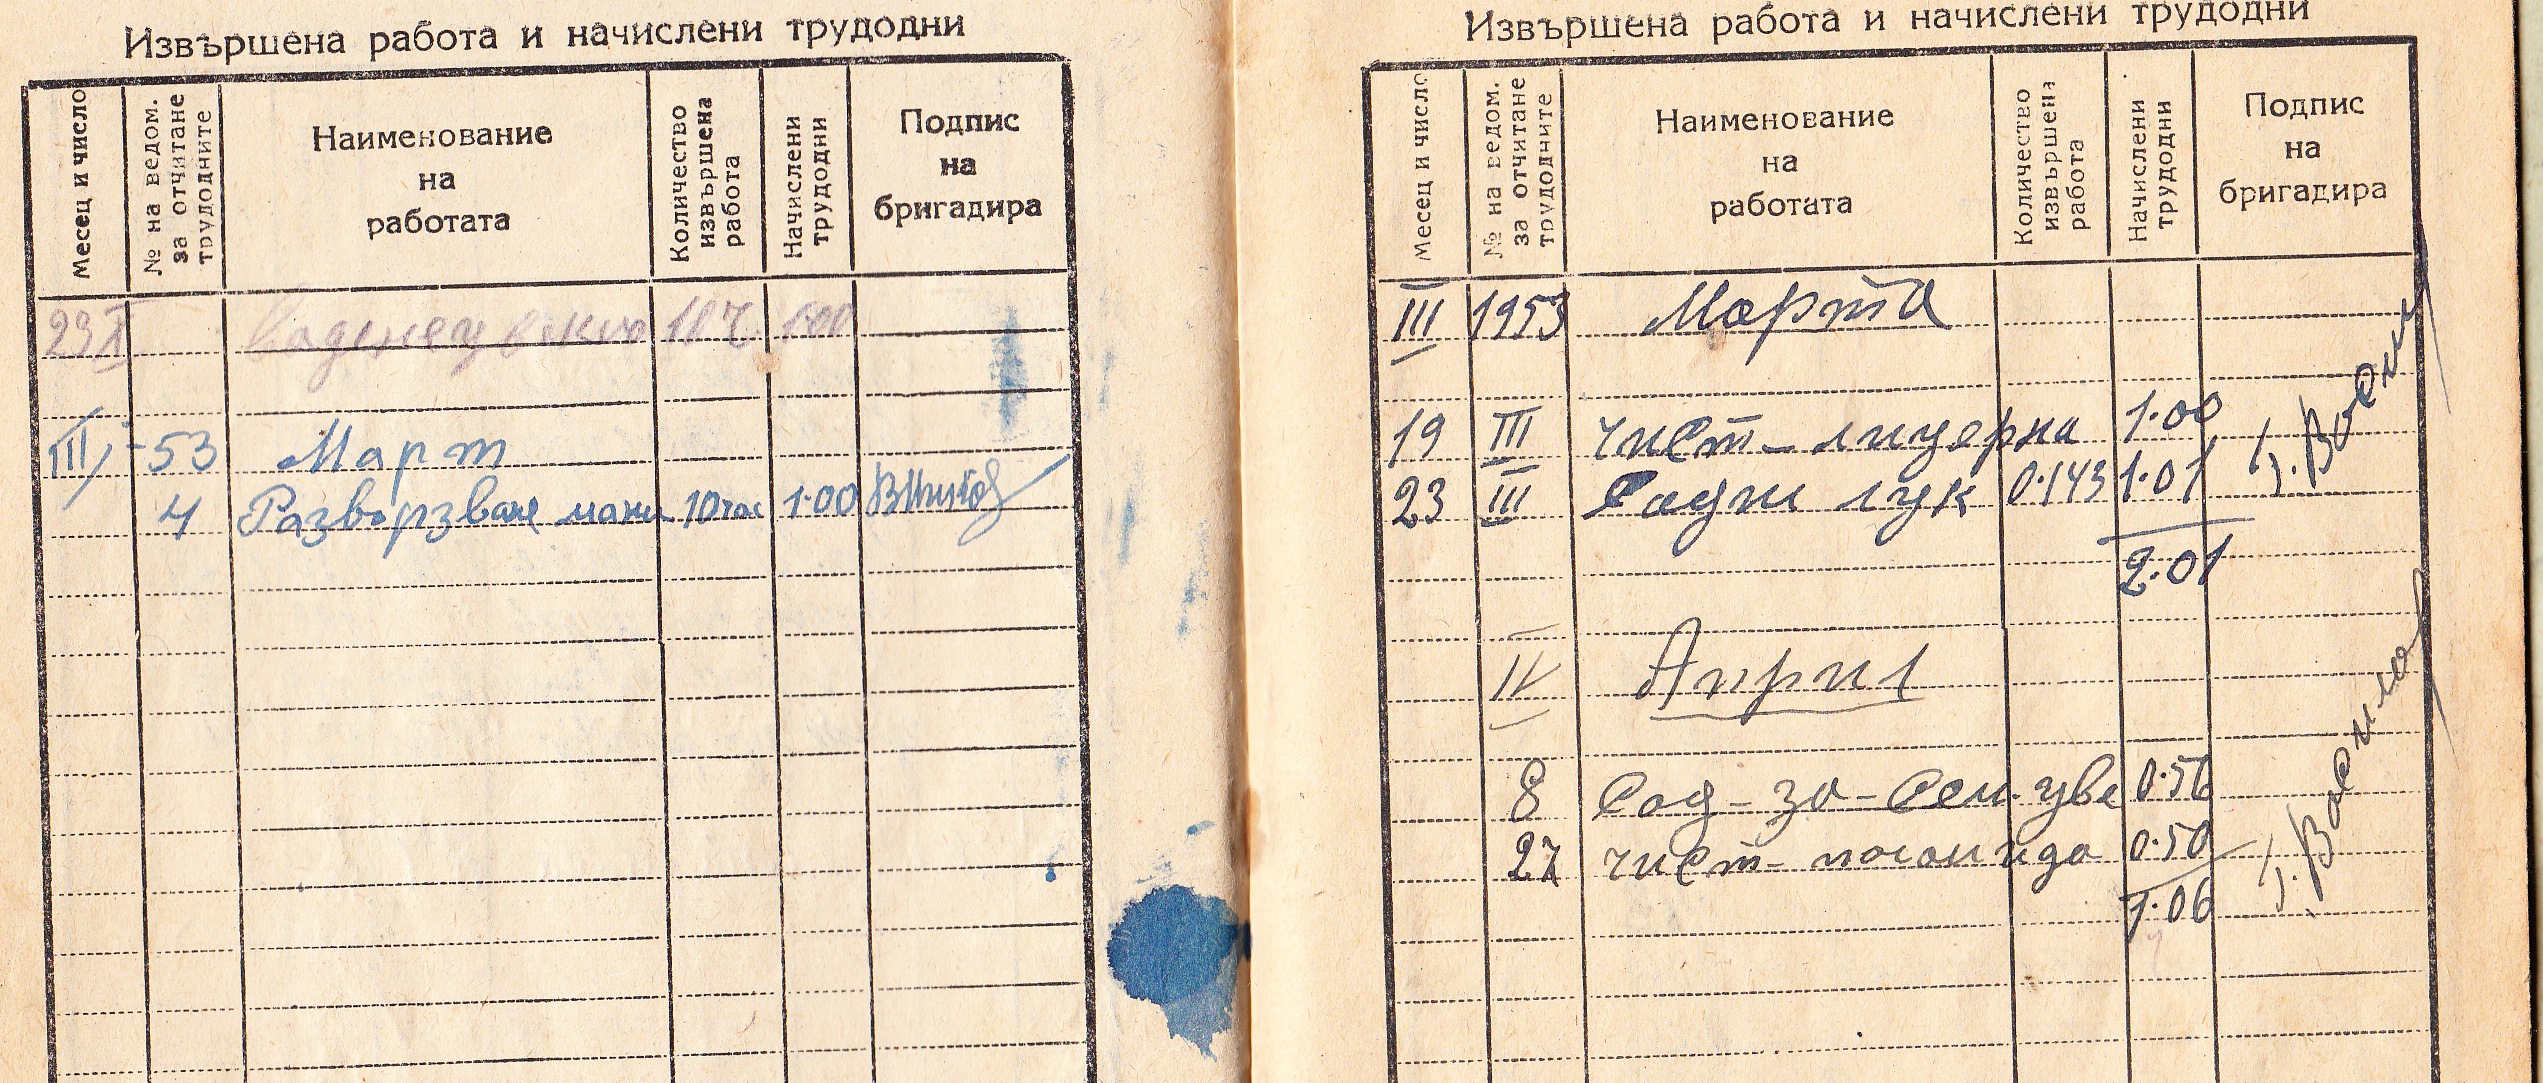 Извършена работа и начислени трудодни
Месец и число
№ на ведом. за отчитане трудодните
Наименование на работата
Количество извършена работа
Начислени трудодни
Подпис на бригадира
23 X 10 ч 1·00
III - 53 Март
4 Развързване 10 час 1·00
Извършена работа и начислени трудодни
Месец и число
№ на ведом. за отчитане трудодните
Наименование на работата
Количество извършена работа
Начислени трудодни
Подпис на бригадира
III 1953 Марта
19 III чист - лицерна 1·00
23 III Сади лук 0·143 1·01
2·01
IV Април
8 Сад - за - Сем. цве 0·56
27 чист - 0·50
1·06